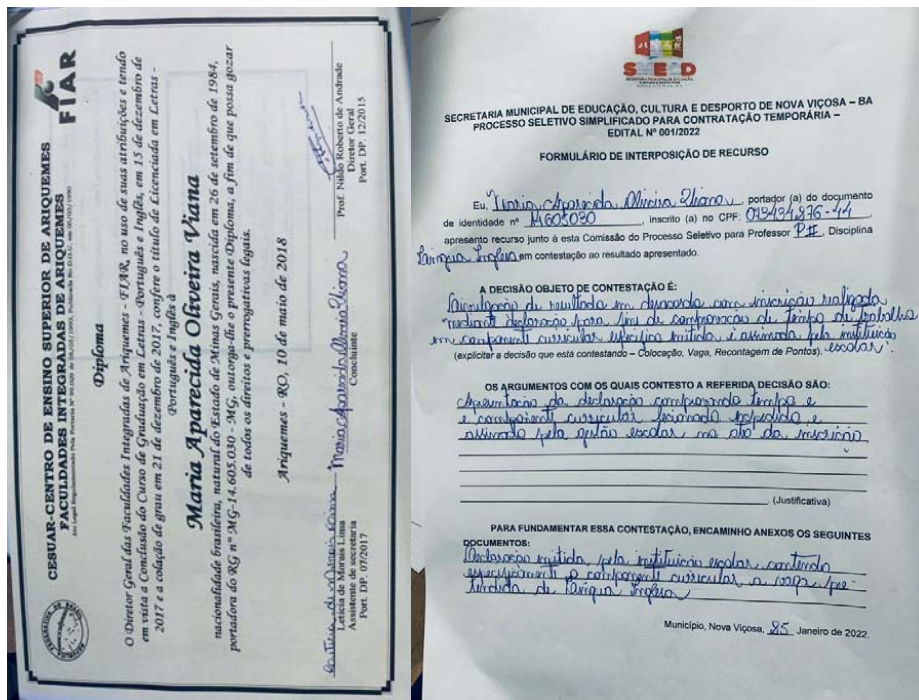 CESUAR-CENTRO DE ENSINO SUPERIOR DE ARIQUEMES
FACULDADES INTEGRADAS DE ARIQUEMES
FIAR
Diploma
O Diretor Geral das Faculdades Integradas de Ariquemes - FIAR, no uso de suas atribuições e tendo
em vista a Conclusão do Curso de Graduação em Letras - Português e Inglês, em 15 de dezembro de
2017 e a colação de grau em 21 de dezembro de 2017, confere o título de Licenciada em Letras -
Português e Inglês à
Maria Aparecida Oliveira Viana
nacionalidade brasileira, natural do Estado de Minas Gerais, nascida em 26 de setembro de 1984,
portadora do RG nº MG-14.605.030 - MG, outorga-lhe o presente Diploma, a fim de que possa gozar
de todos os direitos e prerrogativas legais.
Ariquemes - RO, 10 de maio de 2018
Leticia de Morais Lima
Assistente de secretaria
Port. DP. 07/2017
Maria Aparecida Oliveira Viana
Concluinte
Prof. Nildo Roberto de Andrade
Diretor Geral
Port. DP. 12/2015
SECRETARIA MUNICIPAL DE EDUCAÇÃO, CULTURA E DESPORTO DE NOVA VIÇOSA – BA
PROCESSO SELETIVO SIMPLIFICADO PARA CONTRATAÇÃO TEMPORÁRIA –
EDITAL Nº 001/2022
FORMULÁRIO DE INTERPOSIÇÃO DE RECURSO
Eu, Maria Aparecida Oliveira Viana, portador (a) do documento
de identidade nº 14605030, inscrito (a) no CPF:
apresento recurso junto à esta Comissão do Processo Seletivo para Professor PII, Disciplina
Língua Inglesa em contestação ao resultado apresentado.
A DECISÃO OBJETO DE CONTESTAÇÃO É:
Divulgação de resultado em desacordo com inscrição realizada
mediante declaração para fim de comprovação de tempo de trabalho
em componente curricular específico emitida e assinada pela instituição
escolar.
(explicitar a decisão que está contestando – Colocação, Vaga, Recontagem de Pontos).
OS ARGUMENTOS COM OS QUAIS CONTESTO A REFERIDA DECISÃO SÃO:
Apresentação da declaração comprovando tempo e
e componente curricular lecionado e
assinado pela gestão escolar no ato da inscrição
(Justificativa)
PARA FUNDAMENTAR ESSA CONTESTAÇÃO, ENCAMINHO ANEXOS OS SEGUINTES
DOCUMENTOS:
Declaração emitida pela instituição escolar contendo
especificamente o componente curricular a vaga pre-
tendida de Língua Inglesa
Município, Nova Viçosa, 25 Janeiro de 2022.